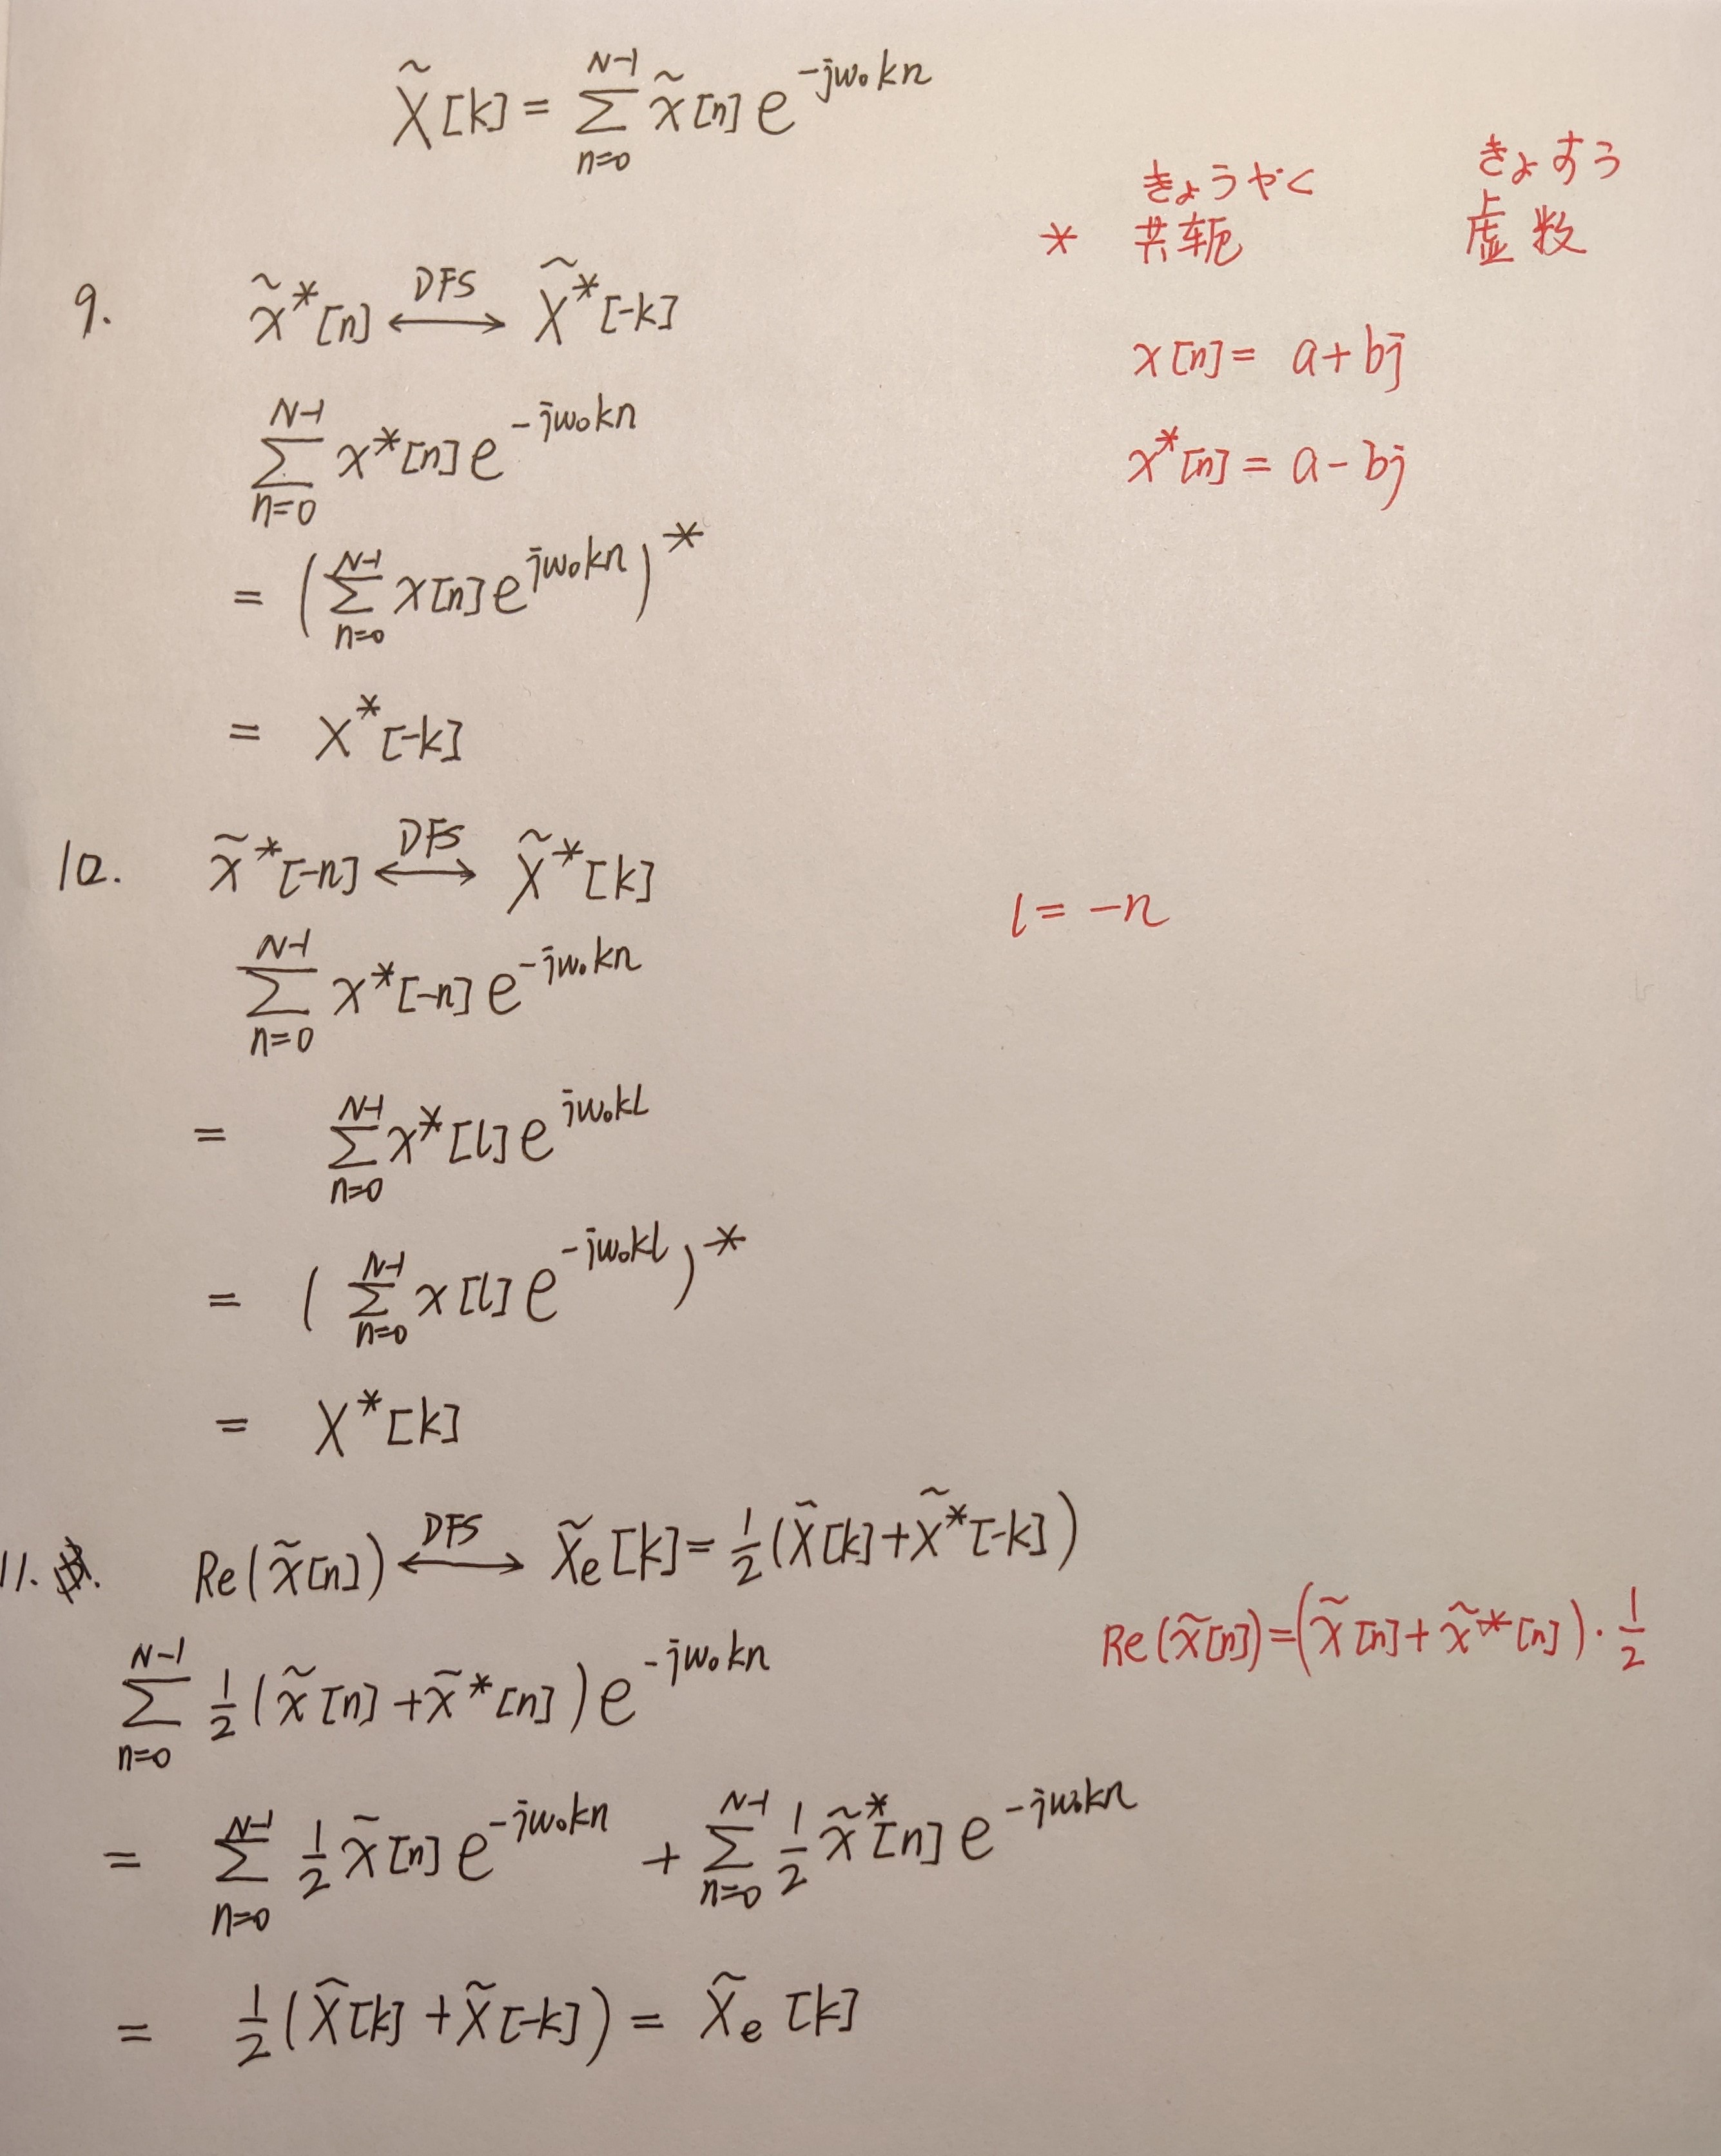 X̃[k] = Σ_{n=0}^{N-1} x̃[n] e^{-jω₀kn}
きょうやく きょすう
* 共轭 虚数
9. x̃*[n] ⟷^{DFS} X̃*[-k]
x[n] = a+bj
Σ_{n=0}^{N-1} x*[n] e^{-jω₀kn}
x*[n] = a-bj
= (Σ_{n=0}^{N-1} x[n] e^{jω₀kn})*
= X*[-k]
10. x̃*[-n] ⟷^{DFS} X̃*[k]
l = -n
Σ_{n=0}^{N-1} x*[-n] e^{-jω₀kn}
= Σ_{n=0}^{N-1} x*[l] e^{jω₀kl}
= (Σ_{n=0}^{N-1} x[l] e^{-jω₀kl})*
= X*[k]
11. Re(x̃[n]) ⟷^{DFS} X̃e[k] = 1/2(X̃[k]+X̃*[-k])
Re(x̃[n]) = (x̃[n]+x̃*[n])·1/2
Σ_{n=0}^{N-1} 1/2(x̃[n]+x̃*[n]) e^{-jω₀kn}
= Σ_{n=0}^{N-1} 1/2 x̃[n] e^{-jω₀kn} + Σ_{n=0}^{N-1} 1/2 x̃*[n] e^{-jω₀kn}
= 1/2(X̃[k]+X̃[-k]) = X̃e[k]